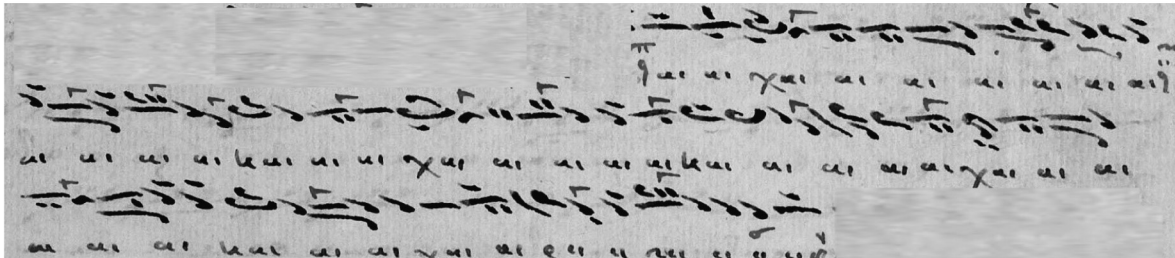 αι αι χαι αι αι αι αι αι αι
αι αι αι αι και αι αι χαι αι αι αι αι και αι αι αι αι χαι αι αι
αι αι αι και αι αι χαι αι